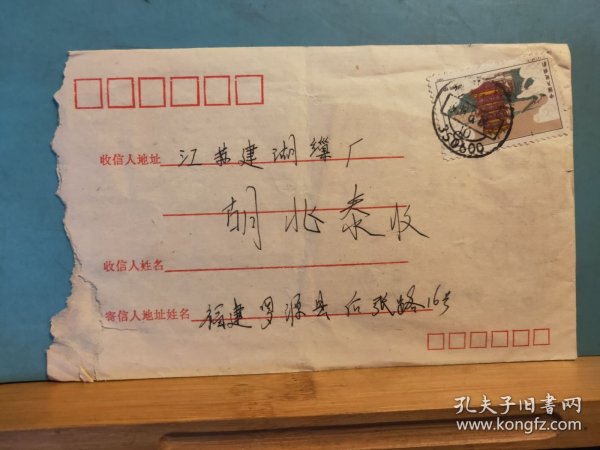 收信人地址 江苏建湖缫厂
胡兆泰收
收信人姓名
寄信人地址姓名 福建罗源县后张路16号
350600
孔夫子旧书网
www.kongfz.com